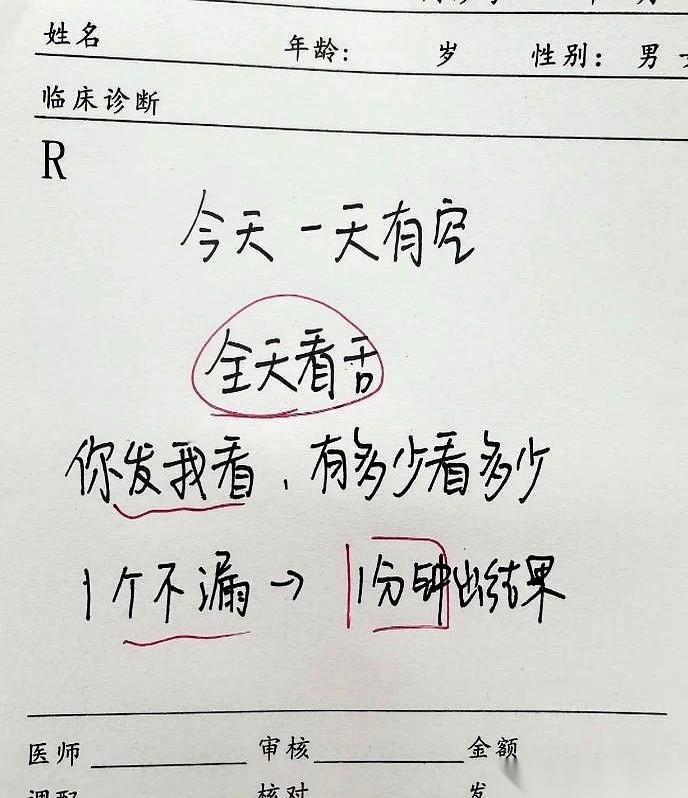 姓名 年龄: 岁 性别: 男
临床诊断
R
今天一天有空
全天看舌
你发我看、有多少看多少
1个不漏→ 1分钟出结果
医师 审核 金额